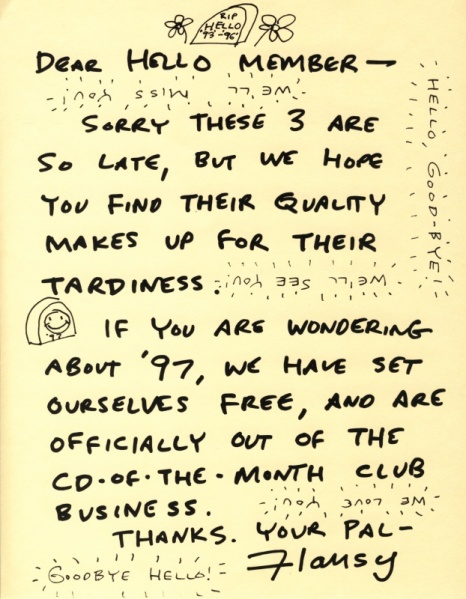 RIP
HELLO
'93-'96
DEAR HELLO MEMBER —
WE'LL MISS YOU!
SORRY THESE 3 ARE
SO LATE, BUT WE HOPE
YOU FIND THEIR QUALITY
MAKES UP FOR THEIR
TARDINESS.
WE'LL SEE YOU!
HELLO, GOOD-BYE!
'97
IF YOU ARE WONDERING
ABOUT '97, WE HAVE SET
OURSELVES FREE, AND ARE
OFFICIALLY OUT OF THE
CD·OF·THE·MONTH CLUB
BUSINESS.
WE LOVE YOU!
THANKS. YOUR PAL—
Flansy
GOODBYE HELLO!